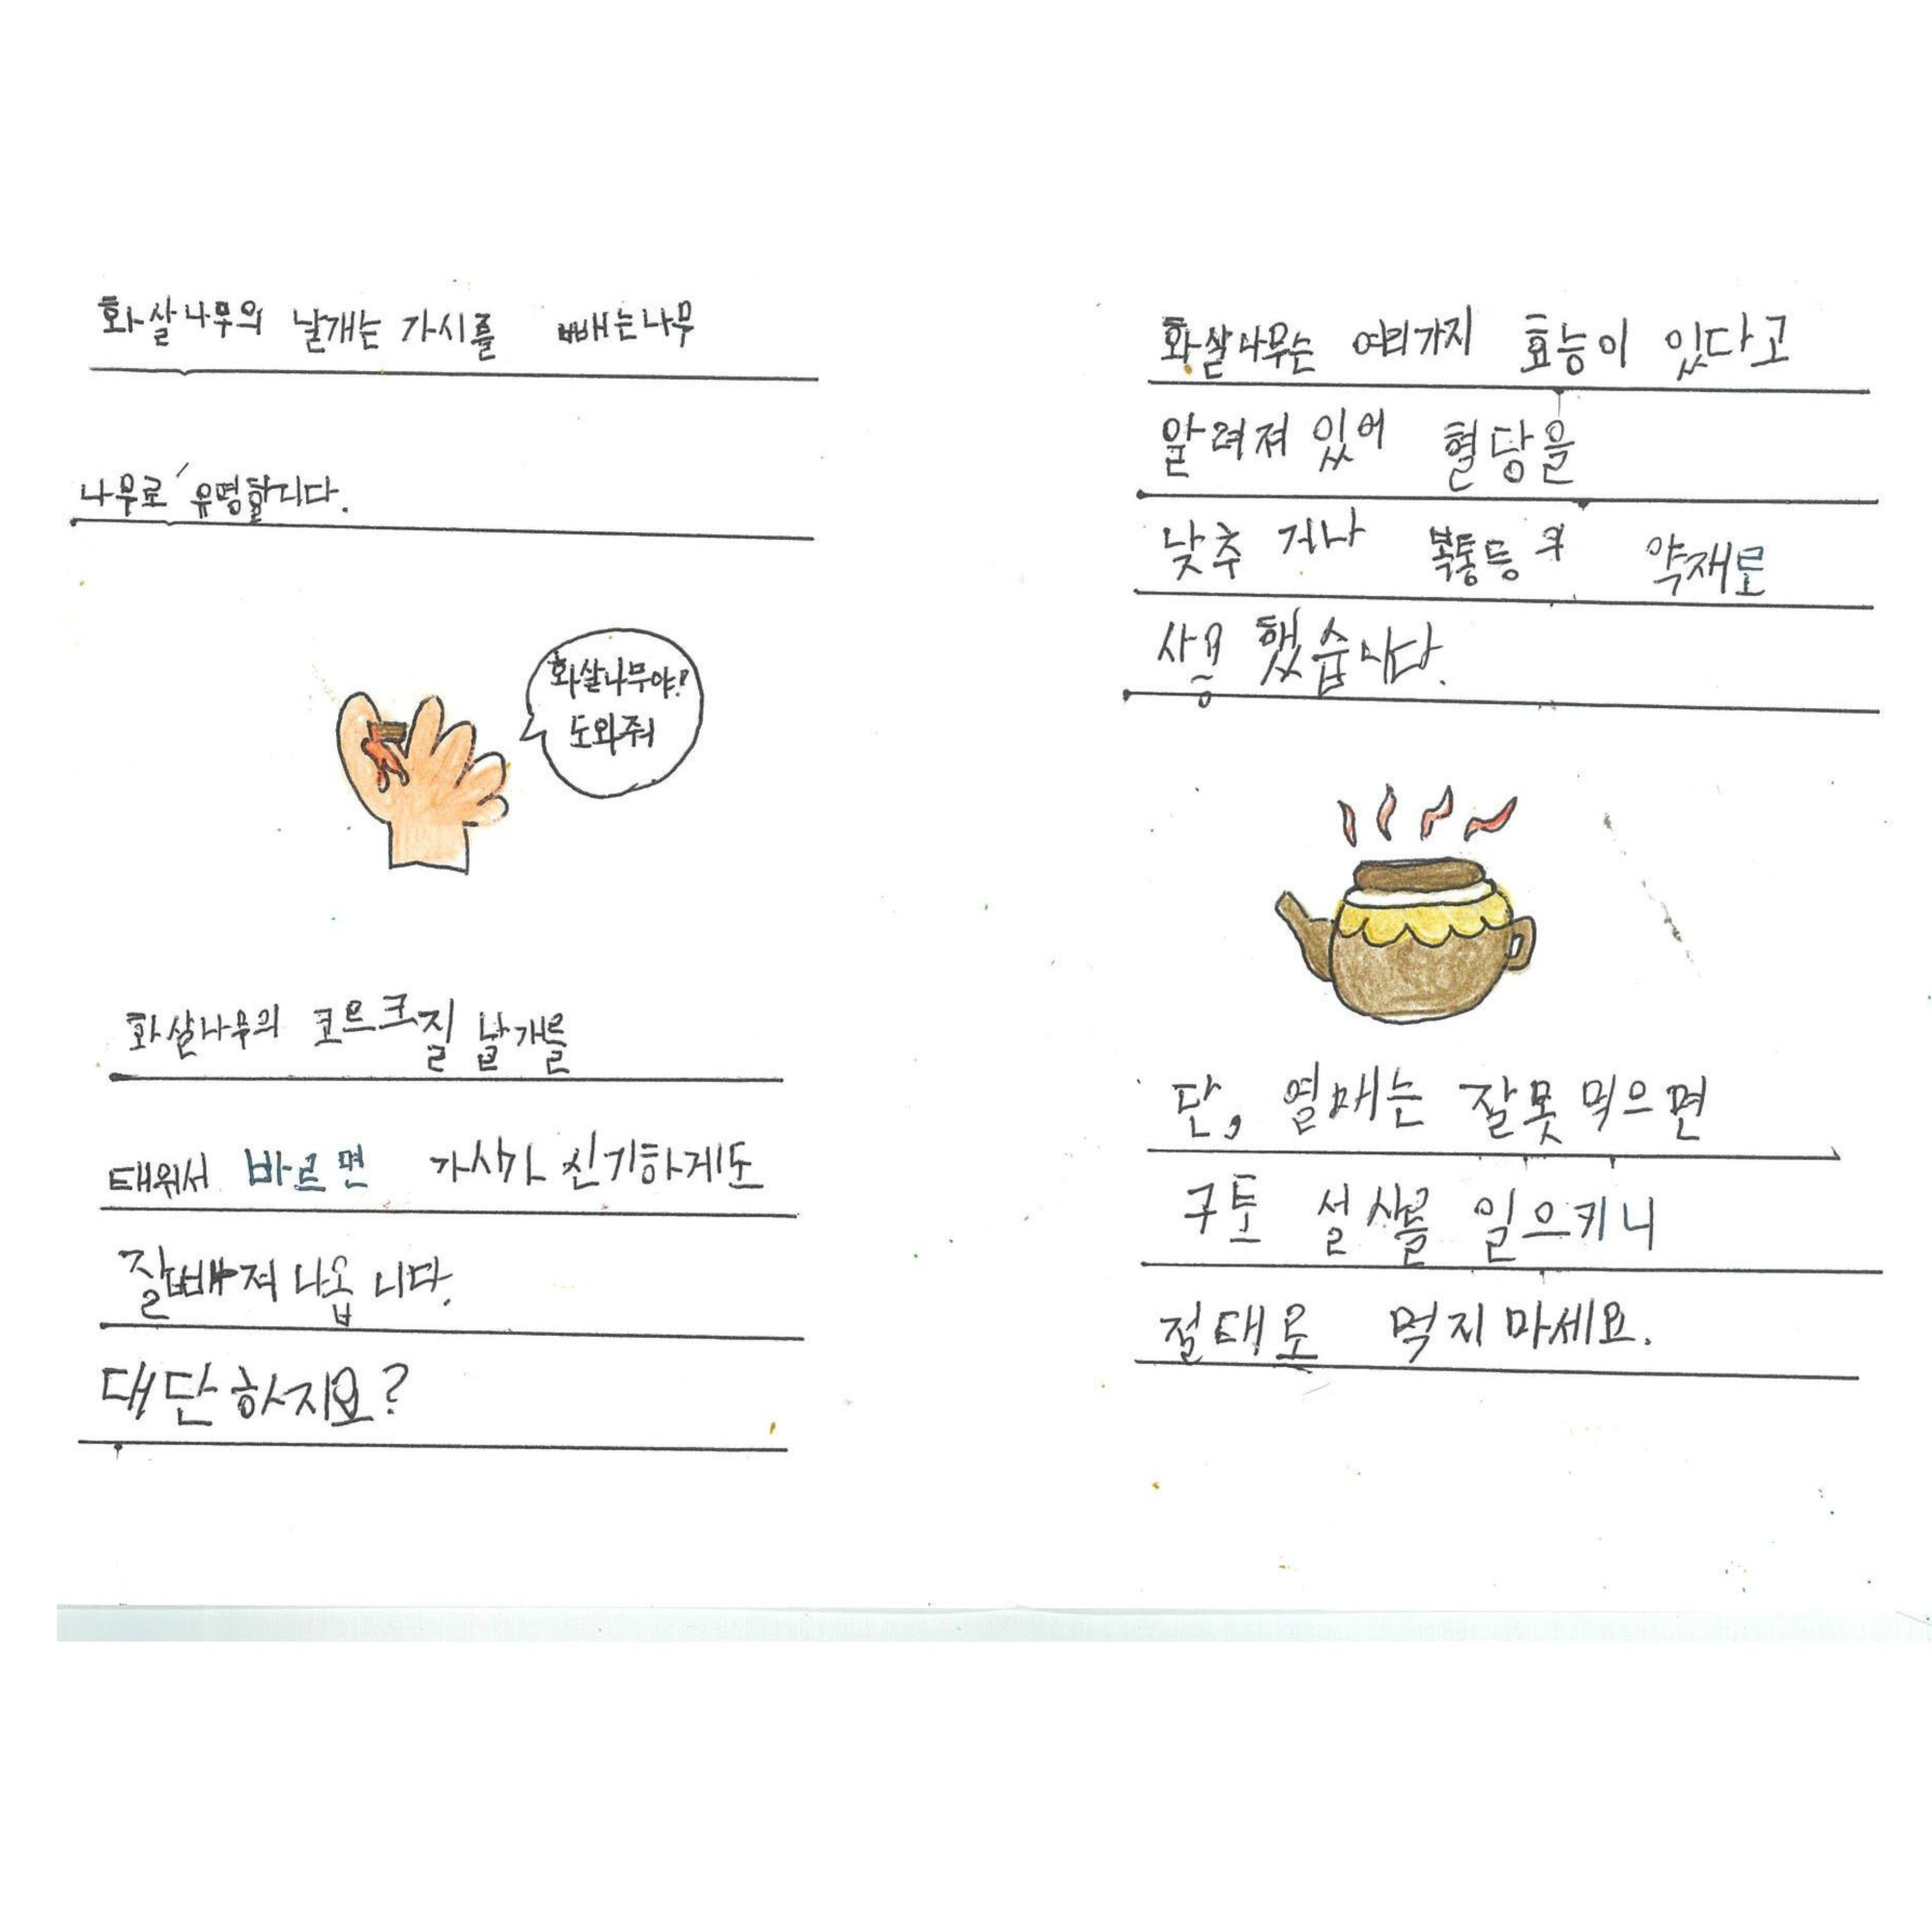 화살나무의 날개는 가시를 빼는나무
나무로 유명합니다.
화살나무야!
도와줘
화살나무의 코르크질 날개를
태워서 바르면 가시가 신기하게도
잘빠져 나옵니다.
대단하지요?
화살나무는 여러가지 효능이 있다고
알려져 있어 혈당을
낮추거나 복통등의 약재로
사용했습니다.
단, 열매는 잘못 먹으면
구토 설사를 일으키니
절대로 먹지 마세요.